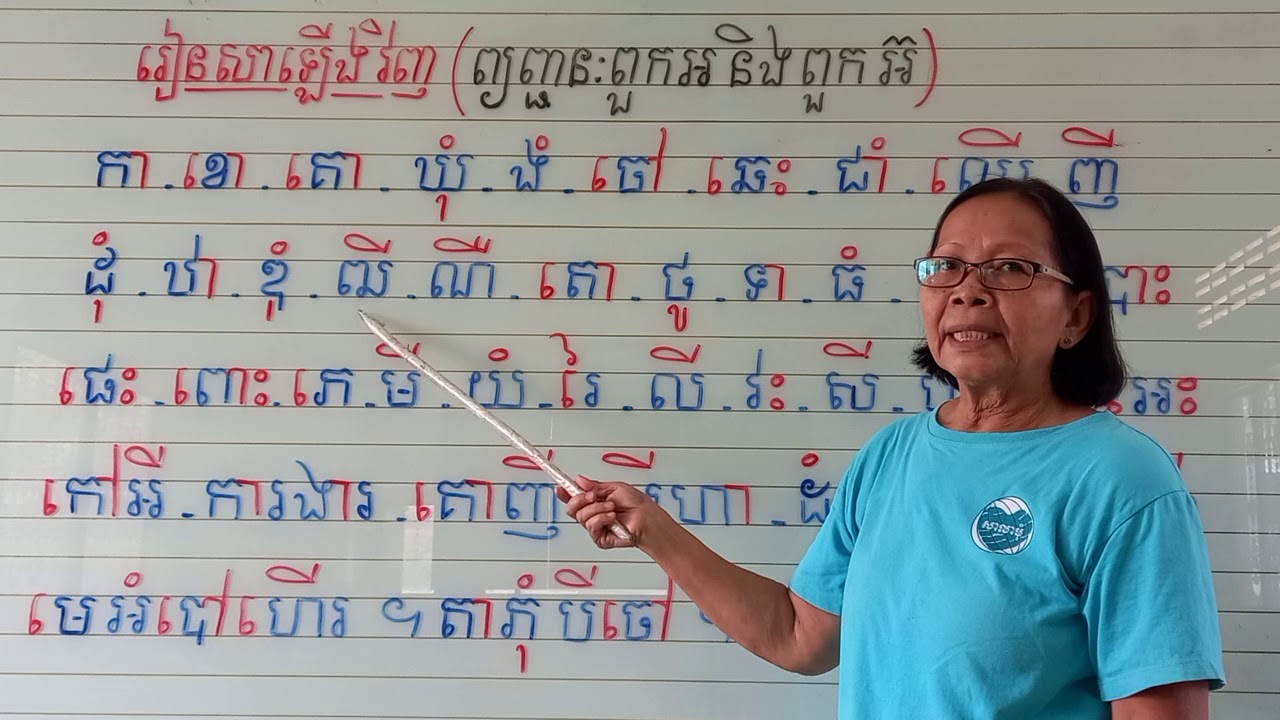 រៀនសាឡើងវិញ (ព្យញ្ជនៈពួកអ និង ពួក អ៊)
កា . ខោ . គោ . ឃុំ . ងំ . ចៅ . ឆេះ . ជាំ . ឈើ ញី
ដុំ . ឋា . ឌុំ . ឍី . ណី . តោ . ថូ . ទា . ធំ . បោះ
ផេះ . ពោះ . ភេ . មី . យំ . រៃ . លី . វះ . សី . អះ
កៅអី . ការងារ . គោញី ហោ . ដំ
មេអំបៅហើរ ។ តាភុំ បីចៅ ។
សាលាមុំ